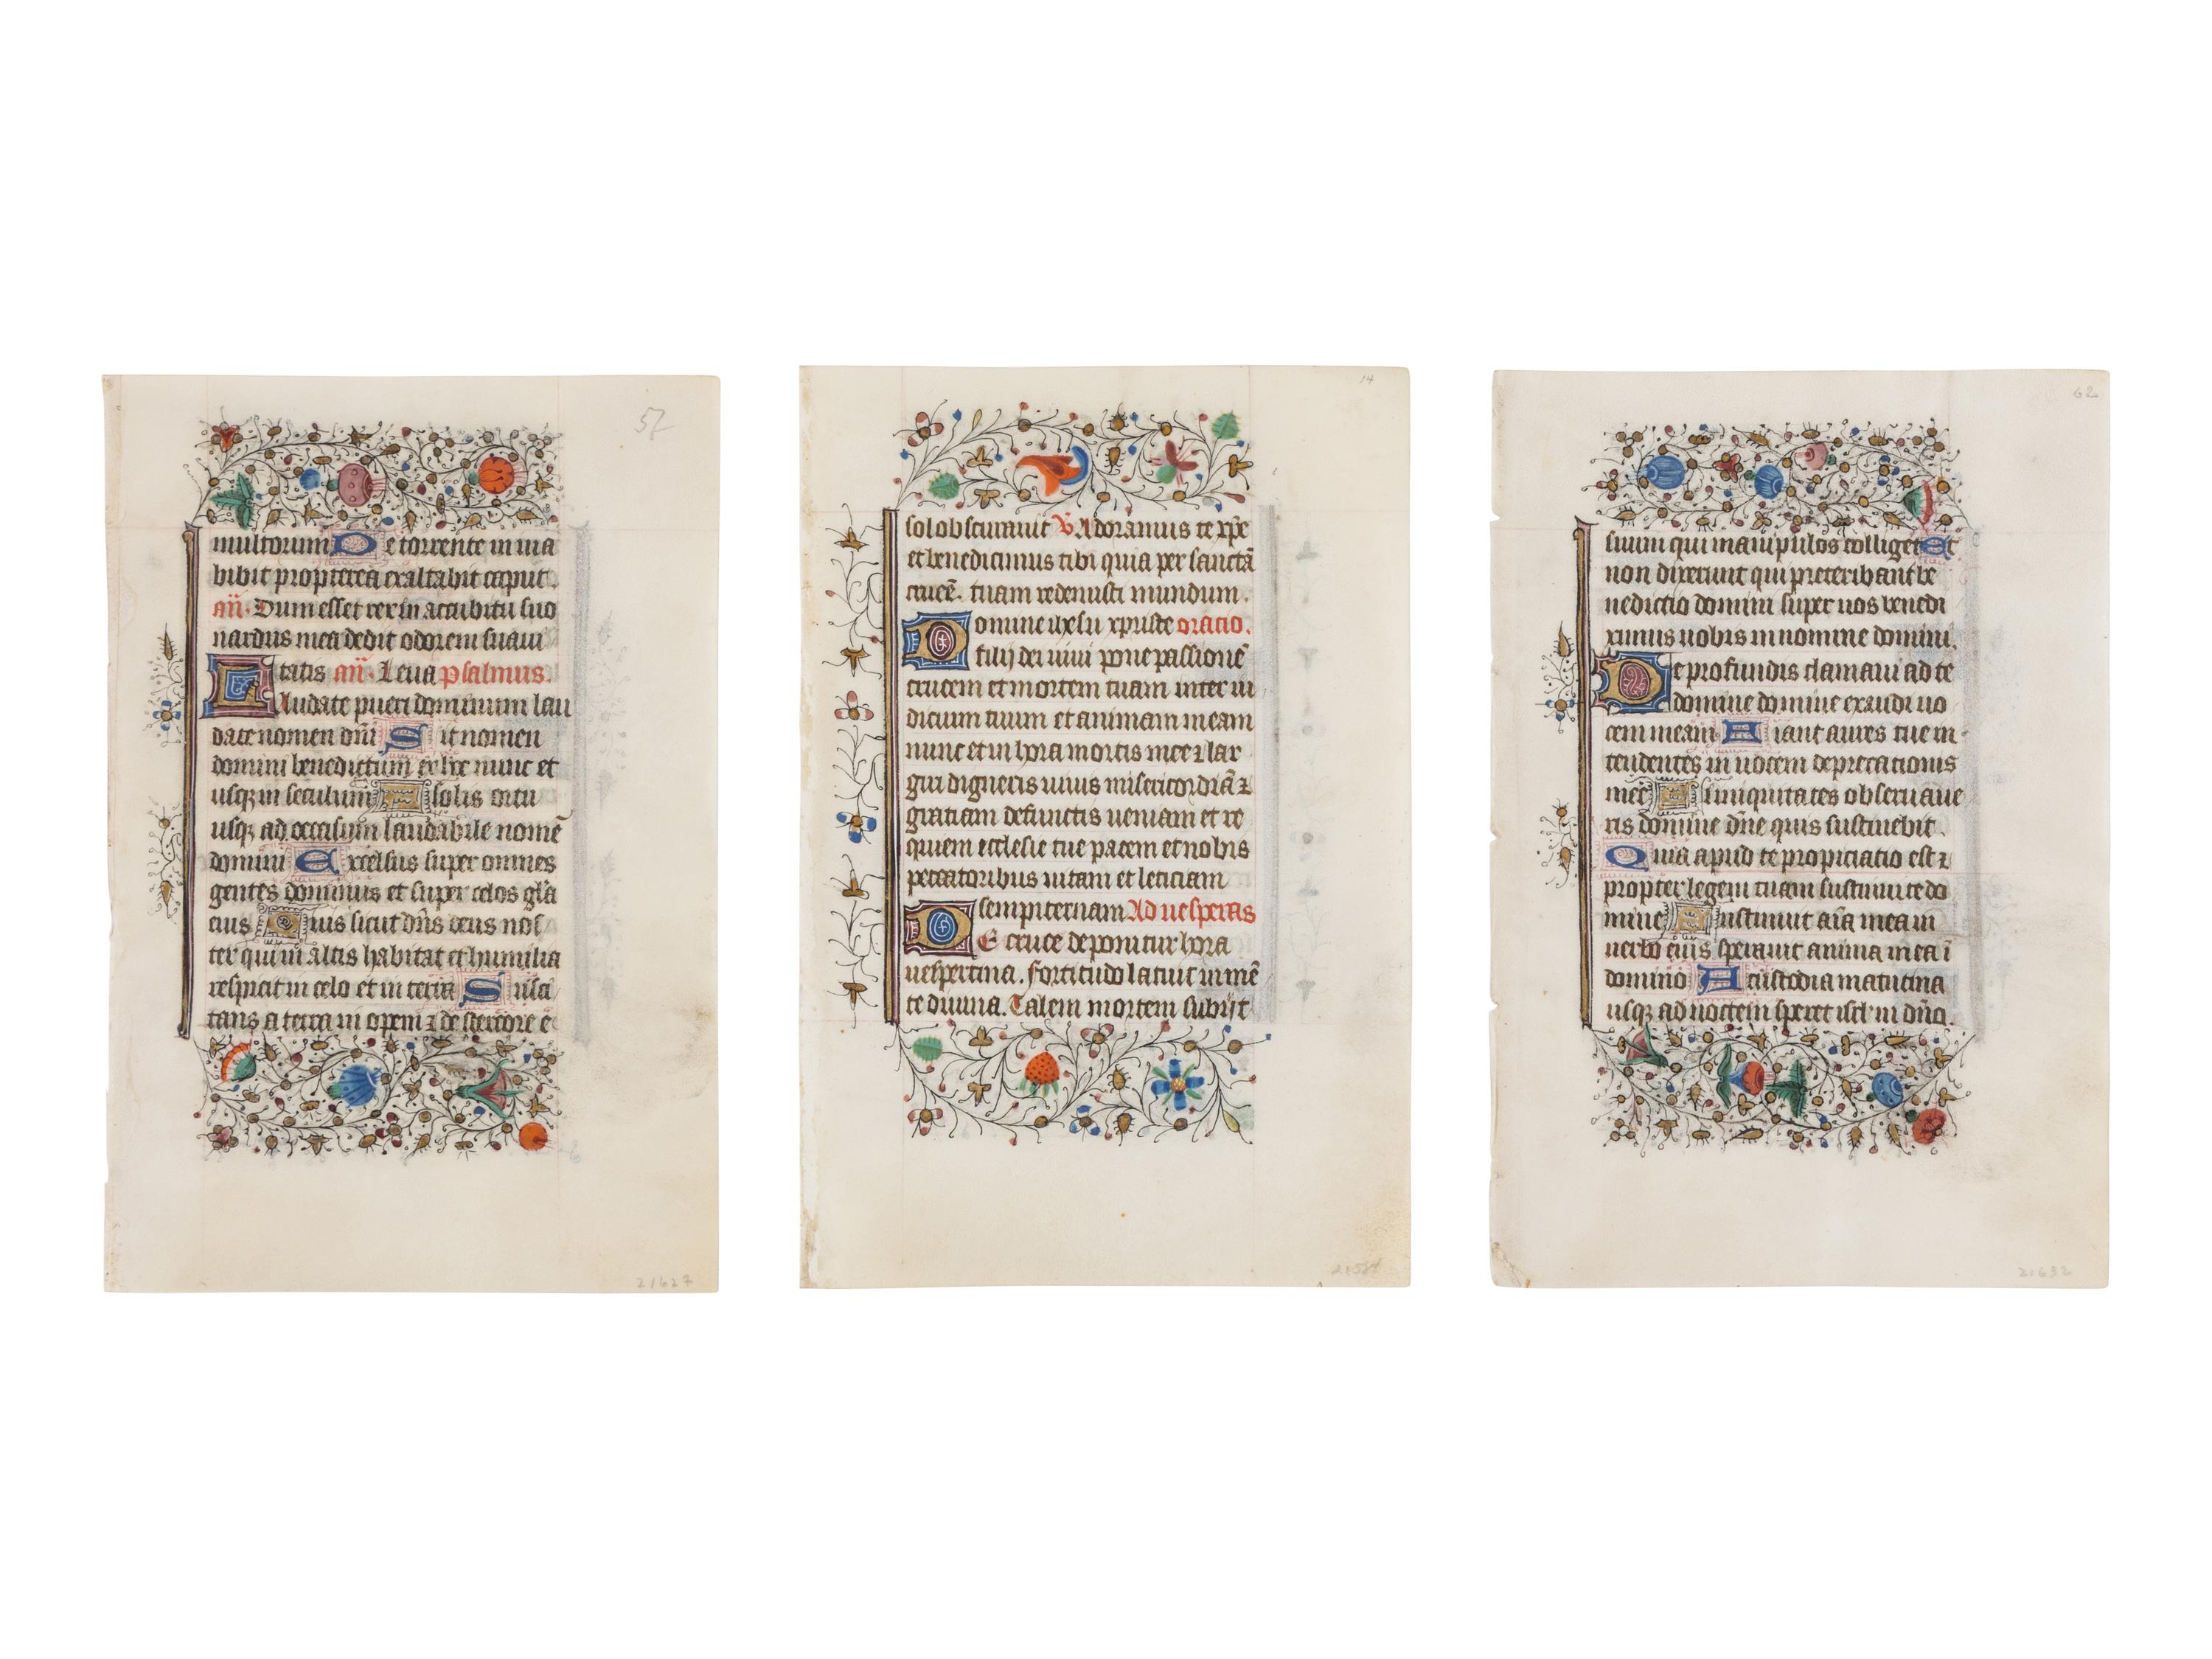 57
multorum De torrente in uia
bibit propterea exaltabit caput.
añ. Dum esset rex in accubitu suo
nardus mea dedit odorem suaui
tatis añ. Leua psalmus.
Laudate pueri dominum lau
date nomen dñi Sit nomen
domini benedictum ex hoc nunc et
usqꝫ in seculum A solis ortu
usqꝫ ad occasum laudabile nomē
domini Excelsus super omnes
gentes dominus et super celos gl̄a
eius Quis sicut dñs deus nos
ter qui in altis habitat et humilia
respicit in celo et in terra Susci
tans a terra inopem ⁊ de stercore e
21627
14
sol obscurauit ℣ Adoramus te xp̄e
et benedicimus tibi quia per sanctā
crucē. tuam redemisti mundum.
Domine ihesu xpriste oracio.
filij dei uiui pone passionē
crucem et mortem tuam inter iu
dicium tuum et animam meam
nunc et in hora mortis mee ⁊ lar
giri digneris uiuis misericordiā ⁊
gratiam defunctis ueniam et re
quiem ecclesie tue pacem et nobis
peccatoribus uitam et leticiam
sempiternam Ad uesperas
DE cruce deponitur hora
uespertina. fortitudo latuit in mē
te diuina. Talem mortem subiit
62
suum qui manipulos colliget Et
non dixerunt qui preteribant be
nedictio domini super uos benedi
ximus uobis in nomine domini.
De profundis clamaui ad te
domine domine exaudi uo
cem meam Fiant aures tue in
tendentes in uocem deprecationis
mee Si iniquitates obseruaue
ris domine dñe quis sustinebit.
Quia apud te propiciatio est ⁊
propter legem tuam sustinui te do
mine Sustinuit aīa mea in
uerbo eius sperauit anima mea ī
domino A custodia matutina
usqꝫ ad noctem speret isrl̄ in dño.
21632